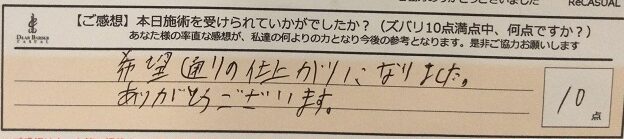 ReCASUAL
【ご感想】本日施術を受けられていかがでしたか？（ズバリ10点満点中、何点ですか？）
あなた様の率直な感想が、私達の何よりの力となり今後の参考となります。是非ご協力お願いします
DEAR BARBER
CASUAL
希望通りの仕上がりになりました。
ありがとうございます。
10
点